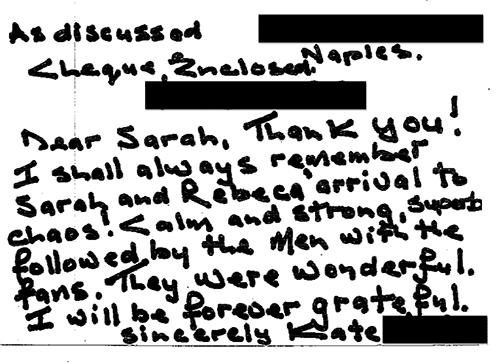 As discussed
Cheque, Enclosed. Naples.
Dear Sarah, Thank you!
I shall always remember
Sarah and Rebeca arrival to
chaos! Calm and strong, superb
followed by the Men with the
fans. They were wonderful.
I will be forever grateful.
sincerely Kate